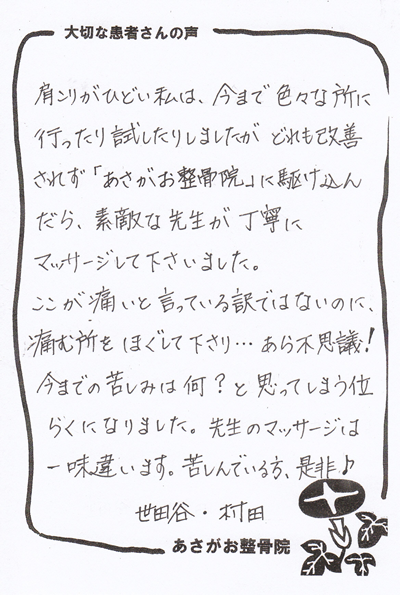 大切な患者さんの声
肩こりがひどい私は、今まで色々な所に
行ったり試したりしましたがどれも改善
されず「あさがお整骨院」に駆け込ん
だら、素敵な先生が丁寧に
マッサージして下さいました。
ここが痛いと言っている訳ではないのに、
痛む所をほぐして下さり…あら不思議!
今までの苦しみは何?と思ってしまう位
らくになりました。先生のマッサージは
一味違います。苦しんでいる方、是非♪
世田谷・村田
あさがお整骨院